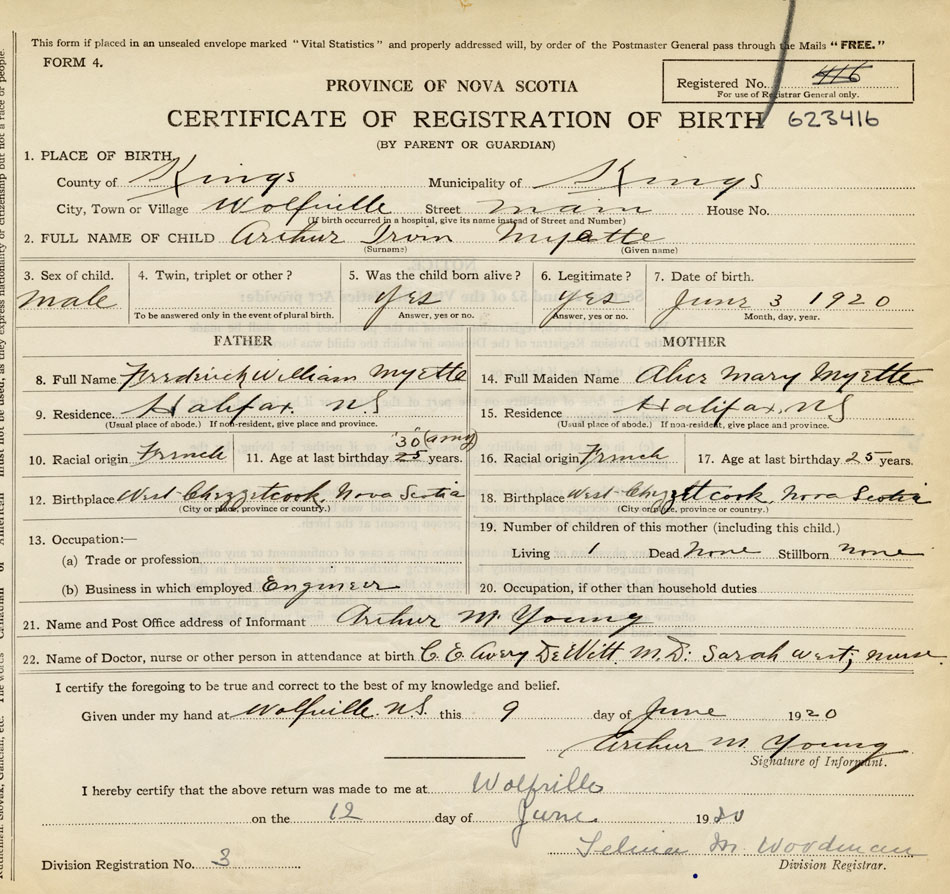 This form if placed in an unsealed envelope marked "Vital Statistics" and properly addressed will, by order of the Postmaster General pass through the Mails "FREE."
FORM 4.
Registered No. 416
For use of Registrar General only.
PROVINCE OF NOVA SCOTIA
CERTIFICATE OF REGISTRATION OF BIRTH 623416
(BY PARENT OR GUARDIAN)
1. PLACE OF BIRTH
County of Kings Municipality of Kings
City, Town or Village Wolfville Street Main House No.
(If birth occurred in a hospital, give its name instead of Street and Number)
2. FULL NAME OF CHILD Arthur Irvin Myette
(Surname) (Given name)
3. Sex of child. 4. Twin, triplet or other? 5. Was the child born alive? 6. Legitimate? 7. Date of birth.
male yes yes June 3 1920
To be answered only in the event of plural birth. Answer, yes or no. Answer, yes or no. Month, day, year.
FATHER MOTHER
8. Full Name Frederick William Myette 14. Full Maiden Name Alice Mary Myette
9. Residence. Halifax, NS 15. Residence Halifax, NS
(Usual place of abode.) If non-resident, give place and province. (Usual place of abode.) If non-resident, give place and province.
"30"
10. Racial origin French 11. Age at last birthday 25 years. 16. Racial origin French 17. Age at last birthday 25 years.
12. Birthplace West Chezzetcook, Nova Scotia 18. Birthplace West Chezzetcook, Nova Scotia
(City or place, province or country.) (City or place, province or country.)
13. Occupation:— 19. Number of children of this mother (including this child.)
(a) Trade or profession Living 1 Dead None Stillborn none
(b) Business in which employed Engineer 20. Occupation, if other than household duties
21. Name and Post Office address of Informant Arthur M. Young
22. Name of Doctor, nurse or other person in attendance at birth C. E. Avery DeWitt, M.D: Sarah West, nurse.
I certify the foregoing to be true and correct to the best of my knowledge and belief.
Given under my hand at Wolfville. N.S. this 9 day of June 1920
Arthur M. Young
Signature of Informant.
I hereby certify that the above return was made to me at Wolfville
on the 12 day of June. 1920
M. Woodman
Division Registration No. 3 Division Registrar.